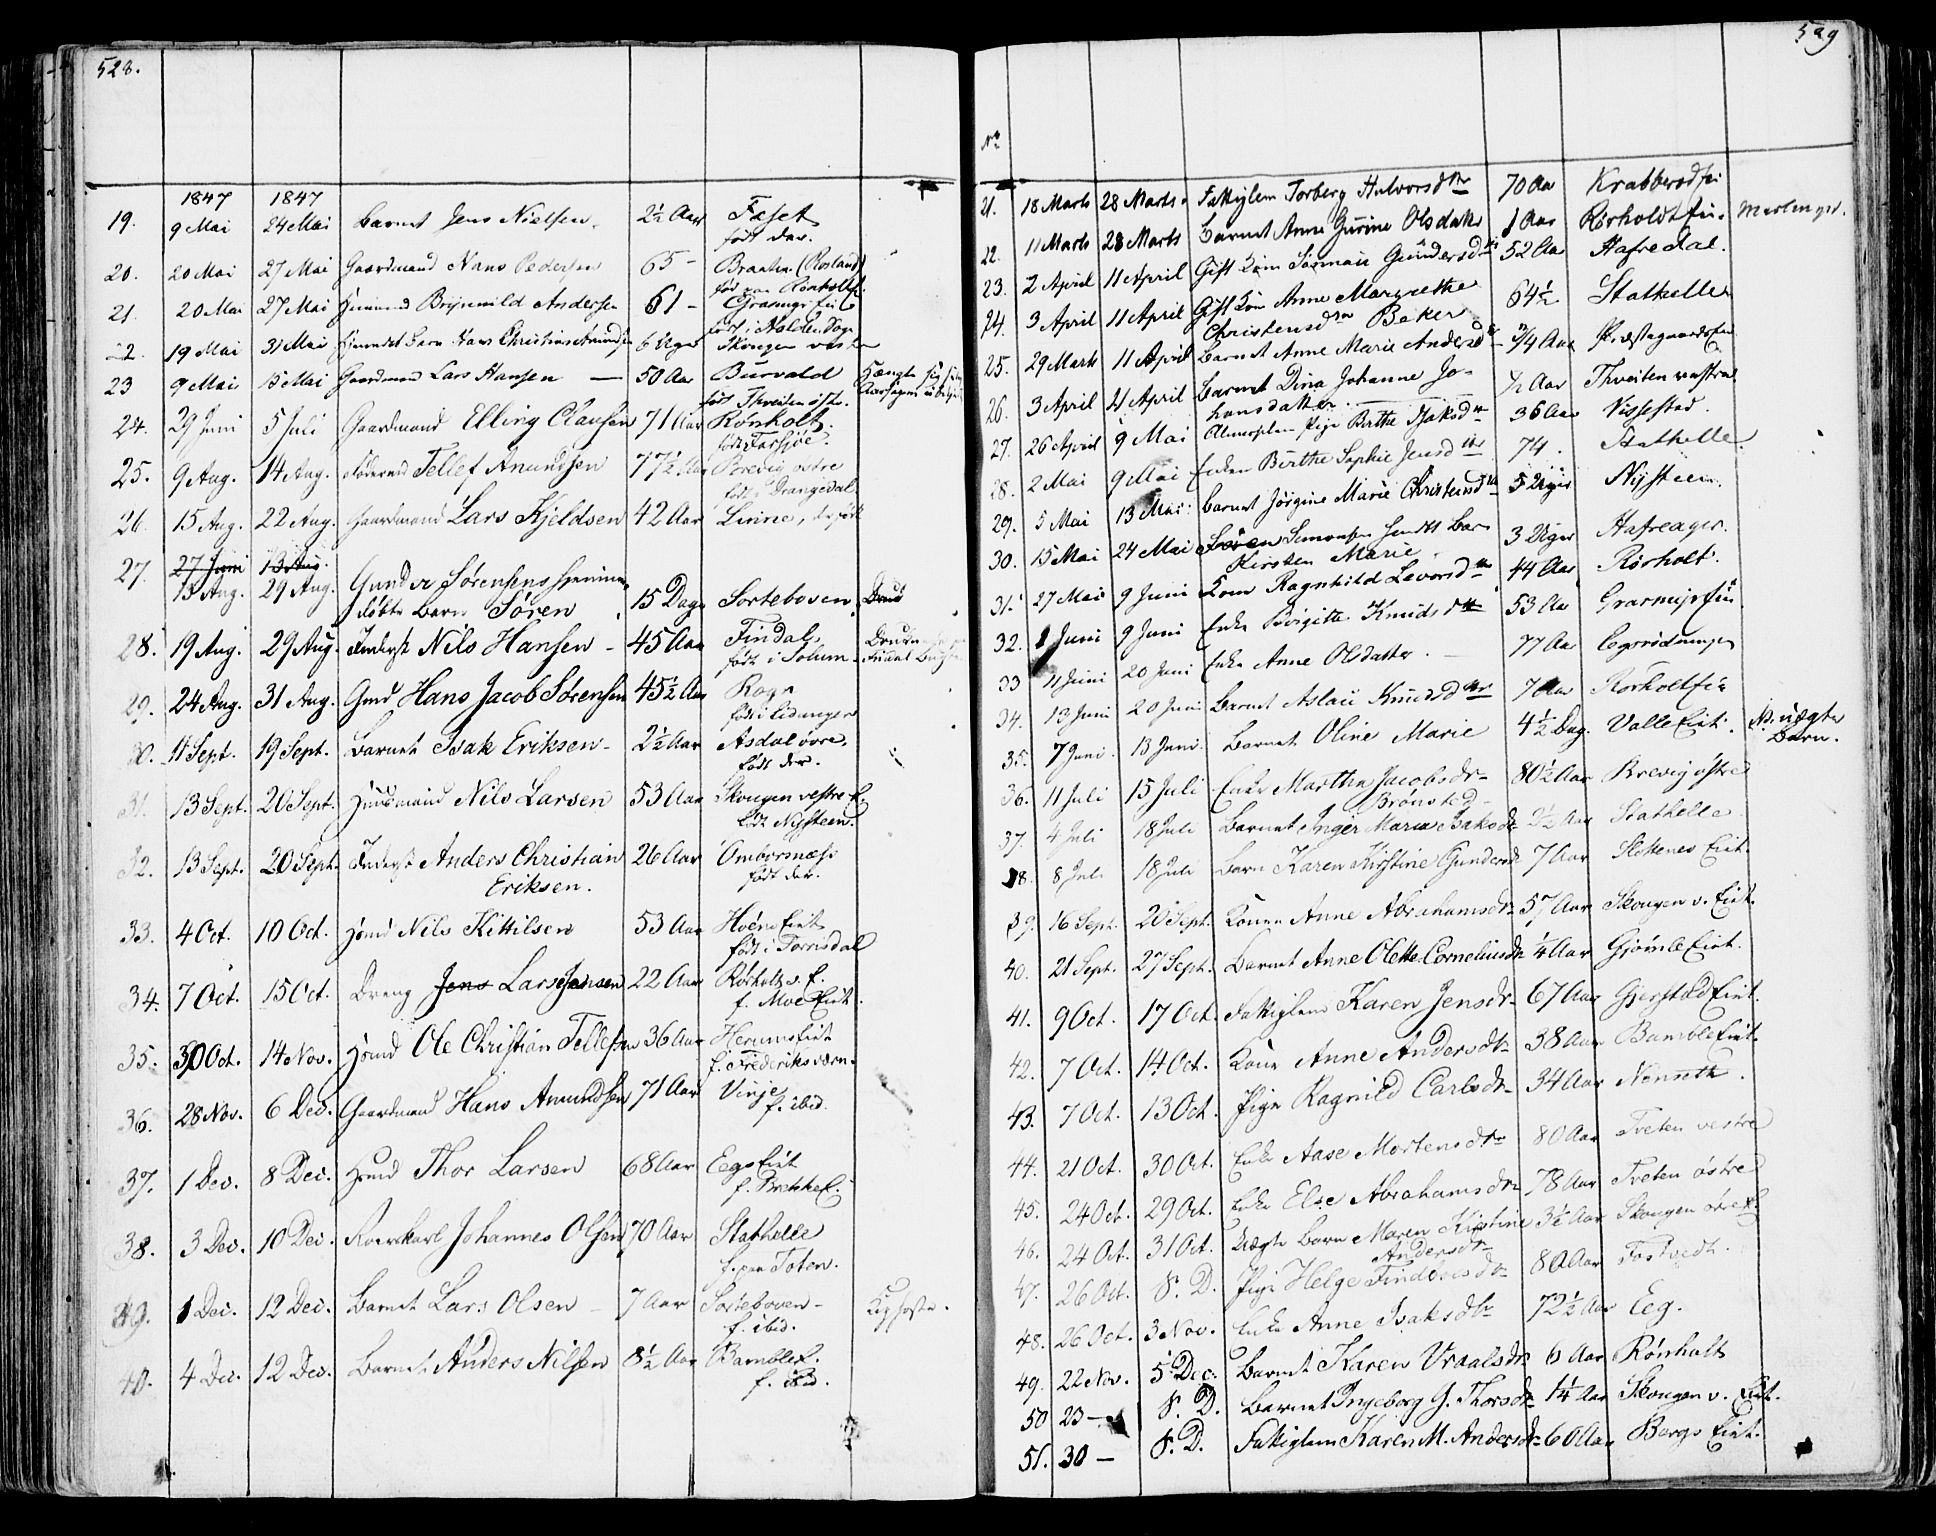 528.
1847 1847
19. 9 Mai 24 Mai Barnet Jens Nielsen. 2½ Aar Faset
født der.
20. 20 Mai 27 Mai Gaardmand Hans Pedersen 65 – Braaten (Rosland)
født paa Rønholt
21. 20 Mai 27 Mai Huusmand Brynnild Andersen 61 –
født i
22. 19 Mai 31 Mai Barn Hans Christian 6 Uger Skougen vestre
23 9 Mai 15 Mai Gaardmand Lars Hansen — 50 Aar Burvald Hængte sig
født Thveiten østr.
24. 29 Juni 5 Juli Gaardmand Elling Clausen 71 Aar Rönholt.
født Farsjøe.
25. 9 Aug. 14 Aug. Tellef Anundsen 77½ Aar Brevig østre
født i Drangedal
26. 15 Aug. 22 Aug. Gaardmand Lars Kjeldsen 42 Aar Linne,
27. 27 Juni 13 Aug.
13 Aug. 29 Aug. Gunder Sørensens hjemme
døbte Barn Søren 15 Dage Sorteboven.
28. 19 Aug. 29 Aug. Inderst Nils Hansen – 45 Aar Findal
født i Solum –
29. 24 Aug. 31 Aug. Gmd Hans Jacob Sørensen 45½ Aar Rogn
født i Eidanger
30. 11 Sept. 19 Sept. Barnet Isak Eriksen – 2½ Aar Asdal övre.
født der.
31. 13 Sept. 20 Sept. Huusmand Nils Larsen 53 Aar Skougen vestre E.
født Nysteen.
32. 13 Sept. 20 Sept. Inderst Anders Christian 26 Aar Ombørsnæss
Eriksen. født der.
33. 4 Oct. 10 Oct. Hsmd Nils Kittilsen 53 Aar Hoën Eiet
født i Torrisdal
34. 7 Oct. 15 Oct. Dreng Jens Lars Jensen 22 Aar Rörholt s. E.
f. Moe Eiet.
35. 30 Oct. 14 Nov. Hsmd Ole Christian Tellefsen 36 Aar Herum Eiet
f. Frederiksværn.
36. 28 Nov. 6 Dec. Gaardmand Hans Anundsen 71 Aar Vinje
f. ibid.
37. 1 Dec. 8 Dec. Hsmd Thor Larsen 68 Aar Eegs Eiet
f.
38. 3 Dec. 10 Dec. Roerskarl Johannes Olsen 70 Aar Stathelle
f. paa Toten.
39. 1 Dec. 12 Dec. Barnet Lars Olsen – 7 Aar Sorteboven –
f. ibid. Kighoste.
40. 4 Dec. 12 Dec. Barnet Anders Nilsen 8½ Aar Bamble E.
f. ibid.
529
No
21. 18 Marts 28 Marts. Fattiglem Torberg Halvorsdtr 70 Aar Krabberød
22. 11 Marts 28 Marts Barnet Anne Gurine Olsdatter 1 Aar Rörholt Mæslinger.
23. 2 April 11 April Gift Kone Gundersdtr 52 Aar Hafredal.
24. 3 April 11 April Gift Kone Anne Margrethe
Christensdtr Beker 64½ Stathelle
25. 29 Marts 11 April Barnet Anne Marie Andersdtr ¾ Aar Præstegaards
26. 3 April 21 April Barnet Dina Johanne Jo-
hansdatter. ½ Aar Thveiten vestre
27. 26 April 9 Mai Pige Birthe Isaksdtr 36 Aar Nissestad.
28. 2 Mai 9 Mai Enken Birthe Sophie Jensdtr 74. Stathelle
29. 5 Mai 13 Mai. Barnet Jörgine Marie Christensdtr 5 Uger Nysteen.
30. 15 Mai 24 Mai Søren Simonsen Barn
Kirsten Marie 3 Uger Hafreager.
31. 27 Mai 9 Juni Kone Ragnhild Lavorsdtr 44 Aar Rörholt.
32. 1 Juni 9 Juni Enke Birgitte Knudsdtr 53 Aar
33 11 Juni 20 Juni Enke Anne Olsdatter. 77 Aar
34. 13 Juni 20 Juni Barnet Aslau Knudsdtr 7 Aar
35. 7 Juni 13 Juni. Barnet Oline Marie 4½ Dag. Valle Eiet. NB. uægte
Barn.
36. 11 Juli 15 Juli Enke Marthea Jacobsdr 80½ Aar Brevig østre
Brönsted
37. 4 Juli 18 Juli Barnet Inger Maria Isaksdr 2½ Aar Stathelle
38. 8 Juli 18 Juli Barn Karen Kirstine Gundersdr 7 Aar Eiet.
39. 16 Sept. 26 Sept. Konen Anne Abrahamsdr 57 Aar Skougen v. Eiet.
40. 21 Sept. 27 Sept. Barnet Anne Olette Corneliusdr ¼ Aar Gjömle Eiet.
41. 9 Oct. 17 Oct. Fattiglem Karen Jensdr 67 Aar Gjerstad Eiet.
42. 7 Oct. 14 Oct. Kone Anne Andersdr 38 Aar Bamble Eiet.
43. 7 Oct. 13 Oct. Pige Ragnild Carlsdr 34 Aar Nenseth.
44. 21 Oct. 30 Oct. Enke Aase Mortensdtr 80 Aar Tveten vestre
45. 24 Oct. 29 Oct. Enke Else Abrahamsdtr 78 Aar Tveten östre
46. 24 Oct. 31 Oct. Uægte Barn Maren Kirstine 3½ Aar Skougen øvre E.
Andersdr
47. 26 Oct. S. D. Pige Helge 80 Aar Tostvedt.
48. 26 Oct. 3 Nov. Enke Anne Isaksdtr 72½ Aar Eeg.
49. 22 Nov. 5 Dec. Barnet Karen Vraalsdr 6 Aar Rönholt
50 23 — S. D. Barnet Ingeborg G. Thorsdr 1¼ Aar Skougen v. Eiet.
51. 30 — S. D. Fattiglem Karen M. Andersdr 60 Aar Bergs Eiet.